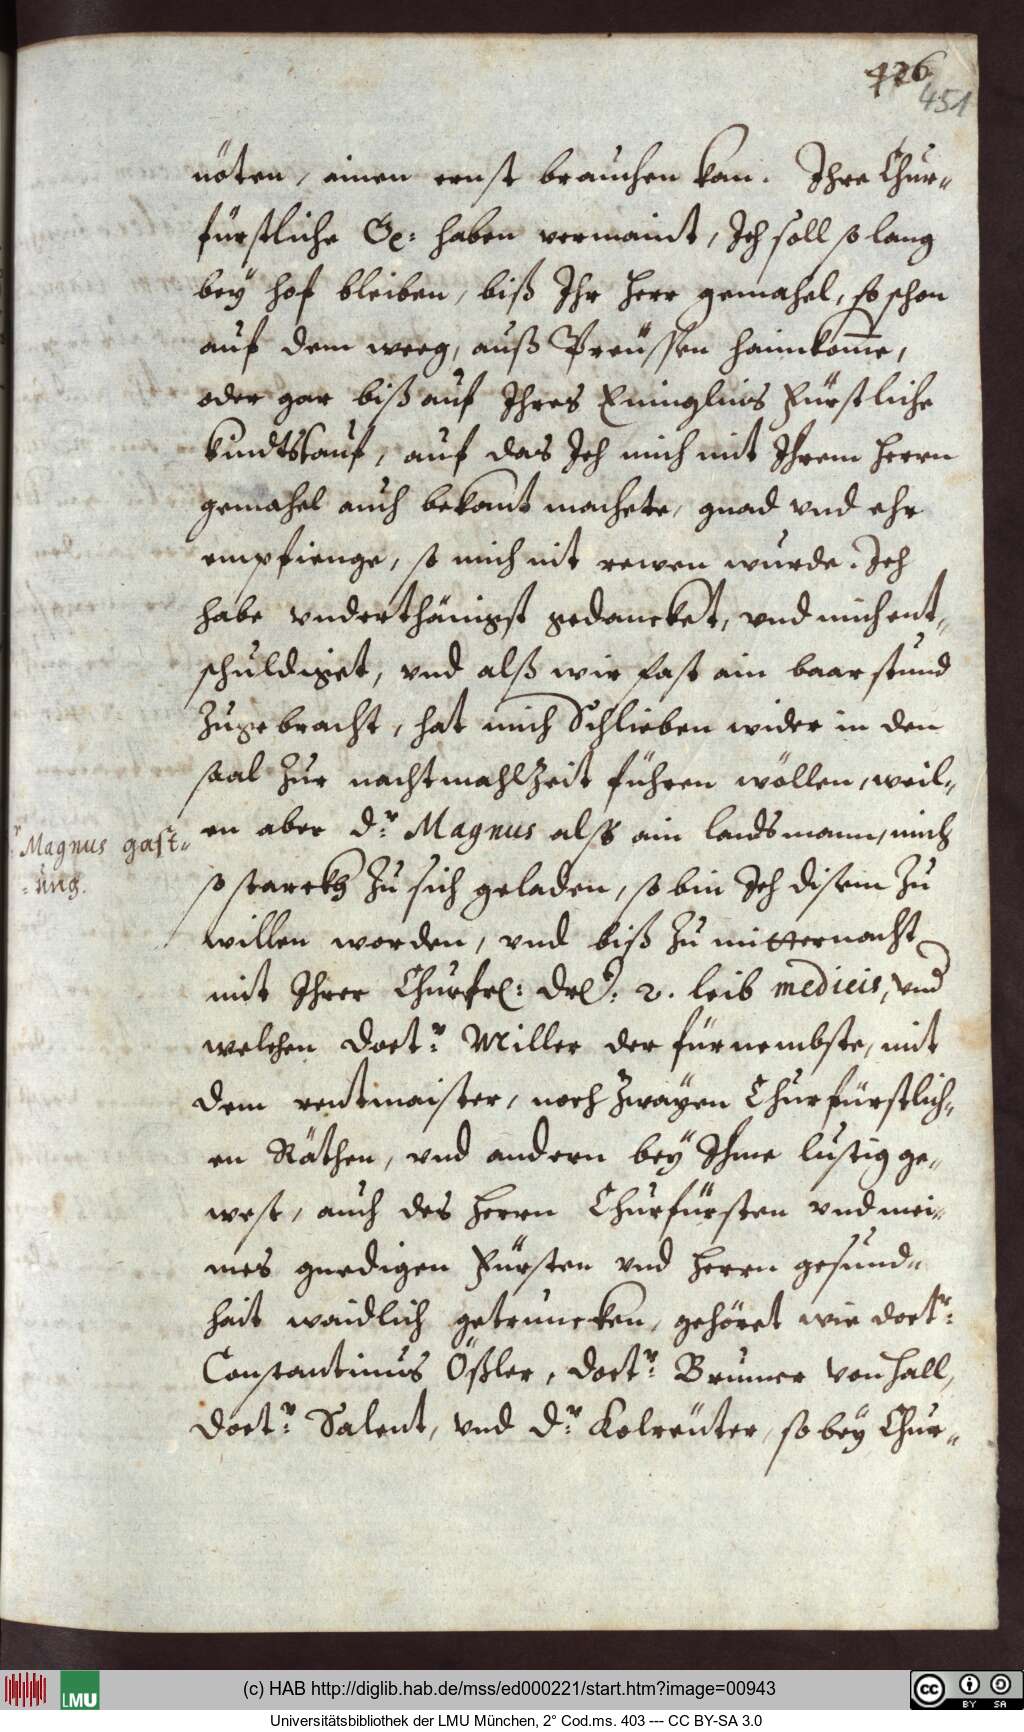 426.
451
nöten, ainen ernst brauchen kan. Ihre Chur„
fürstliche G: haben vermaint, Ich soll so lang
bey hof bleiben, biß Ihr Herr gemahel, so schon
auf dem weeg, auß Preüssen haimkom̄e,
oder gar biß auf Ihres Fürstliche
kindtstauf, auf das Ich mich mit Ihrem Herrn
gemahel auch bekant machete, gnad vnd ehr
empfienge, so mich nit rewen wurde. Ich
habe vnderthänigst gedancket, vnd mich ent„
schuldiget, vnd alß wir fast ain baar stund
zugebracht, hat mich Schlieben wider in den
saal zur nachtmahlzeit führen wöllen, weil„
en aber Dr: Magnus alß ain landsmann, mich
so starckh zu sich geladen, so bin Ich disem zu
willen worden, vnd biß zu mitternacht
mit Ihrer Churfrl: Drl: 2. leib medicis, vnd
welchen Doctr: Miller der fürnembste, mit
dem rentmaister, noch zwayen Churfürstlich„
en Räthen, vnd andern bey Ihme lustig ge„
west, auch des Herrn Churfürsten vnd mei„
nes gnedigen Fürsten vnd Herrn gesund„
hait waidlich getruncken, gehöret wie Doctr:
Constantinus Ößler, Doctr: Brunner von Hall,
Doctr: Salent, vnd Dr: Kolreüter, so bey Chur„
Magnus gast„
ung.
(c) HAB http://diglib.hab.de/mss/ed000221/start.htm?image=00943
Universitätsbibliothek der LMU München, 2° Cod.ms. 403 --- CC BY-SA 3.0
LMU
cc
BY SA